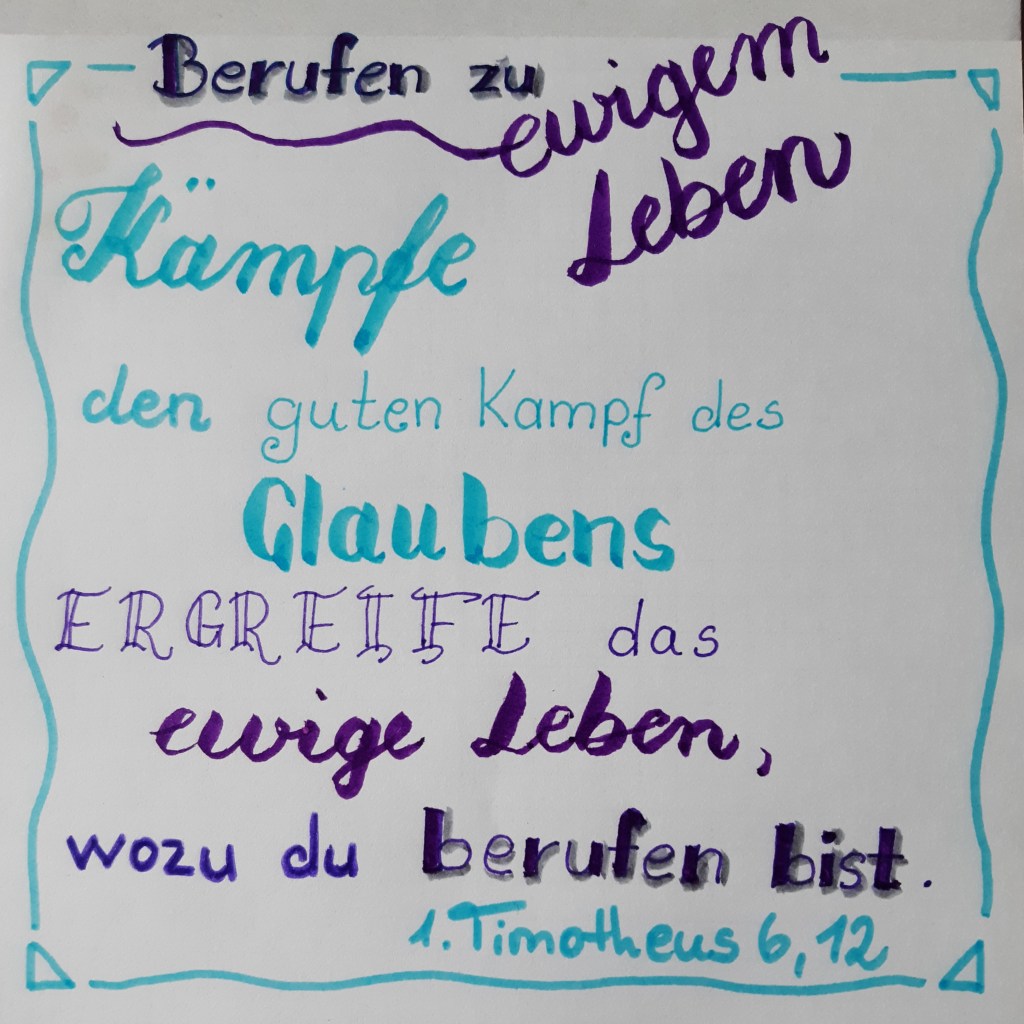 Berufen zu ewigem
Leben
Kämpfe
den guten Kampf des
Glaubens
ERGREIFE das
ewige Leben,
wozu du berufen bist.
1. Timotheus 6, 12